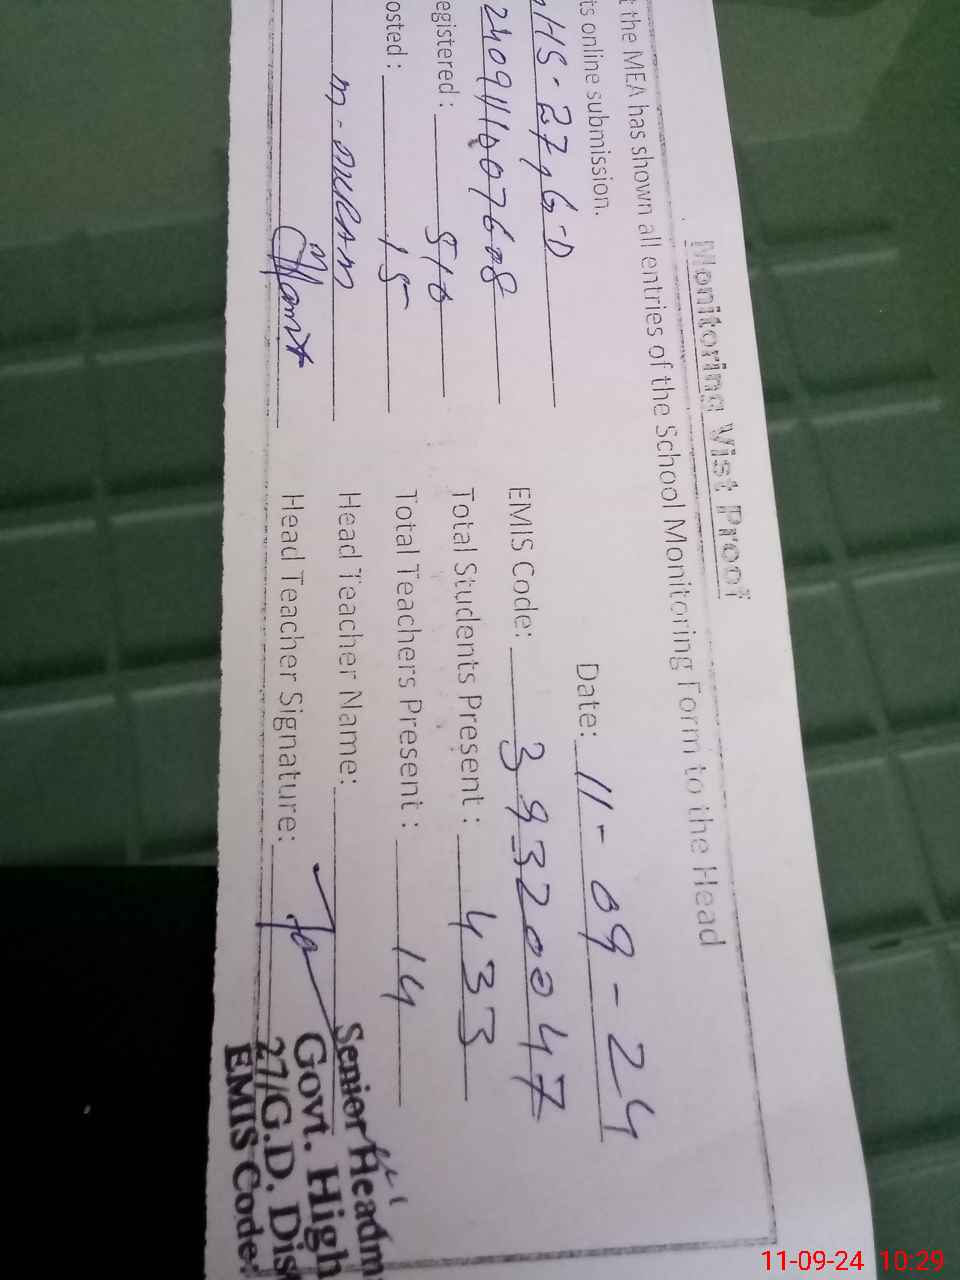 Monitoring Vist Proof
t the MEA has shown all entries of the School Monitoring Form to the Head
ts online submission.
Date: 11-09-24
HS-27, G-D EMIS Code: 39320047
egistered: 510 Total Students Present: 433
osted: 15 Total Teachers Present: 14
m- Head Teacher Name:
Head Teacher Signature:
Senior Headm
Govt. High
27/G.D. Dis
EMIS Code:
11-09-24 10:29